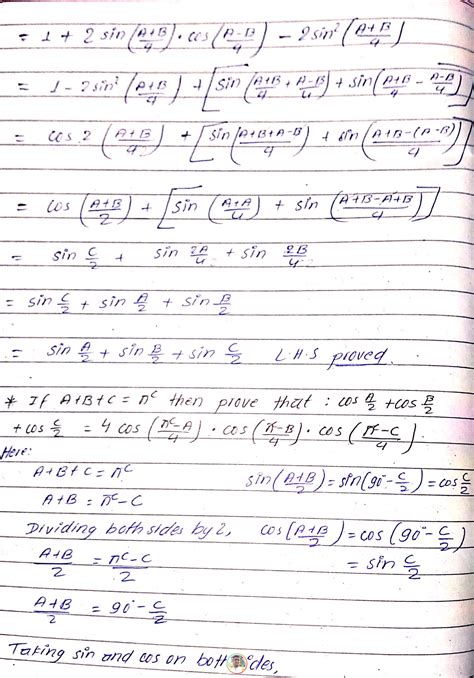 = 1 + 2 sin(A+B/4) · cos(A-B/4) - 2sin²(A+B/4)
= 1 - 2sin²(A+B/4) + [sin(A+B/4 + A-B/4) + sin(A+B/4 - A-B/4)]
= cos 2(A+B/4) + [sin(A+B+A-B/4) + sin(A+B-(A-B)/4)]
= cos(A+B/2) + [sin(A+A/4) + sin(A+B-A+B/4)]
= sin C/2 + sin 2A/4 + sin 2B/4
= sin C/2 + sin A/2 + sin B/2
= sin A/2 + sin B/2 + sin C/2 L.H.S proved.
* If A+B+C = πᶜ then prove that : cos A/2 + cos B/2
+ cos C/2 = 4 cos(πᶜ-A/4) · cos(πᶜ-B/4) · cos(πᶜ-C/4)
Here:
A+B+C = πᶜ
A+B = πᶜ-C
Dividing both sides by 2,
A+B/2 = πᶜ-C/2
A+B/2 = 90° - C/2
sin(A+B/2) = sin(90° - C/2) = cos C/2
cos(A+B/2) = cos(90° - C/2)
= sin C/2
Taking sin and cos on both sides,